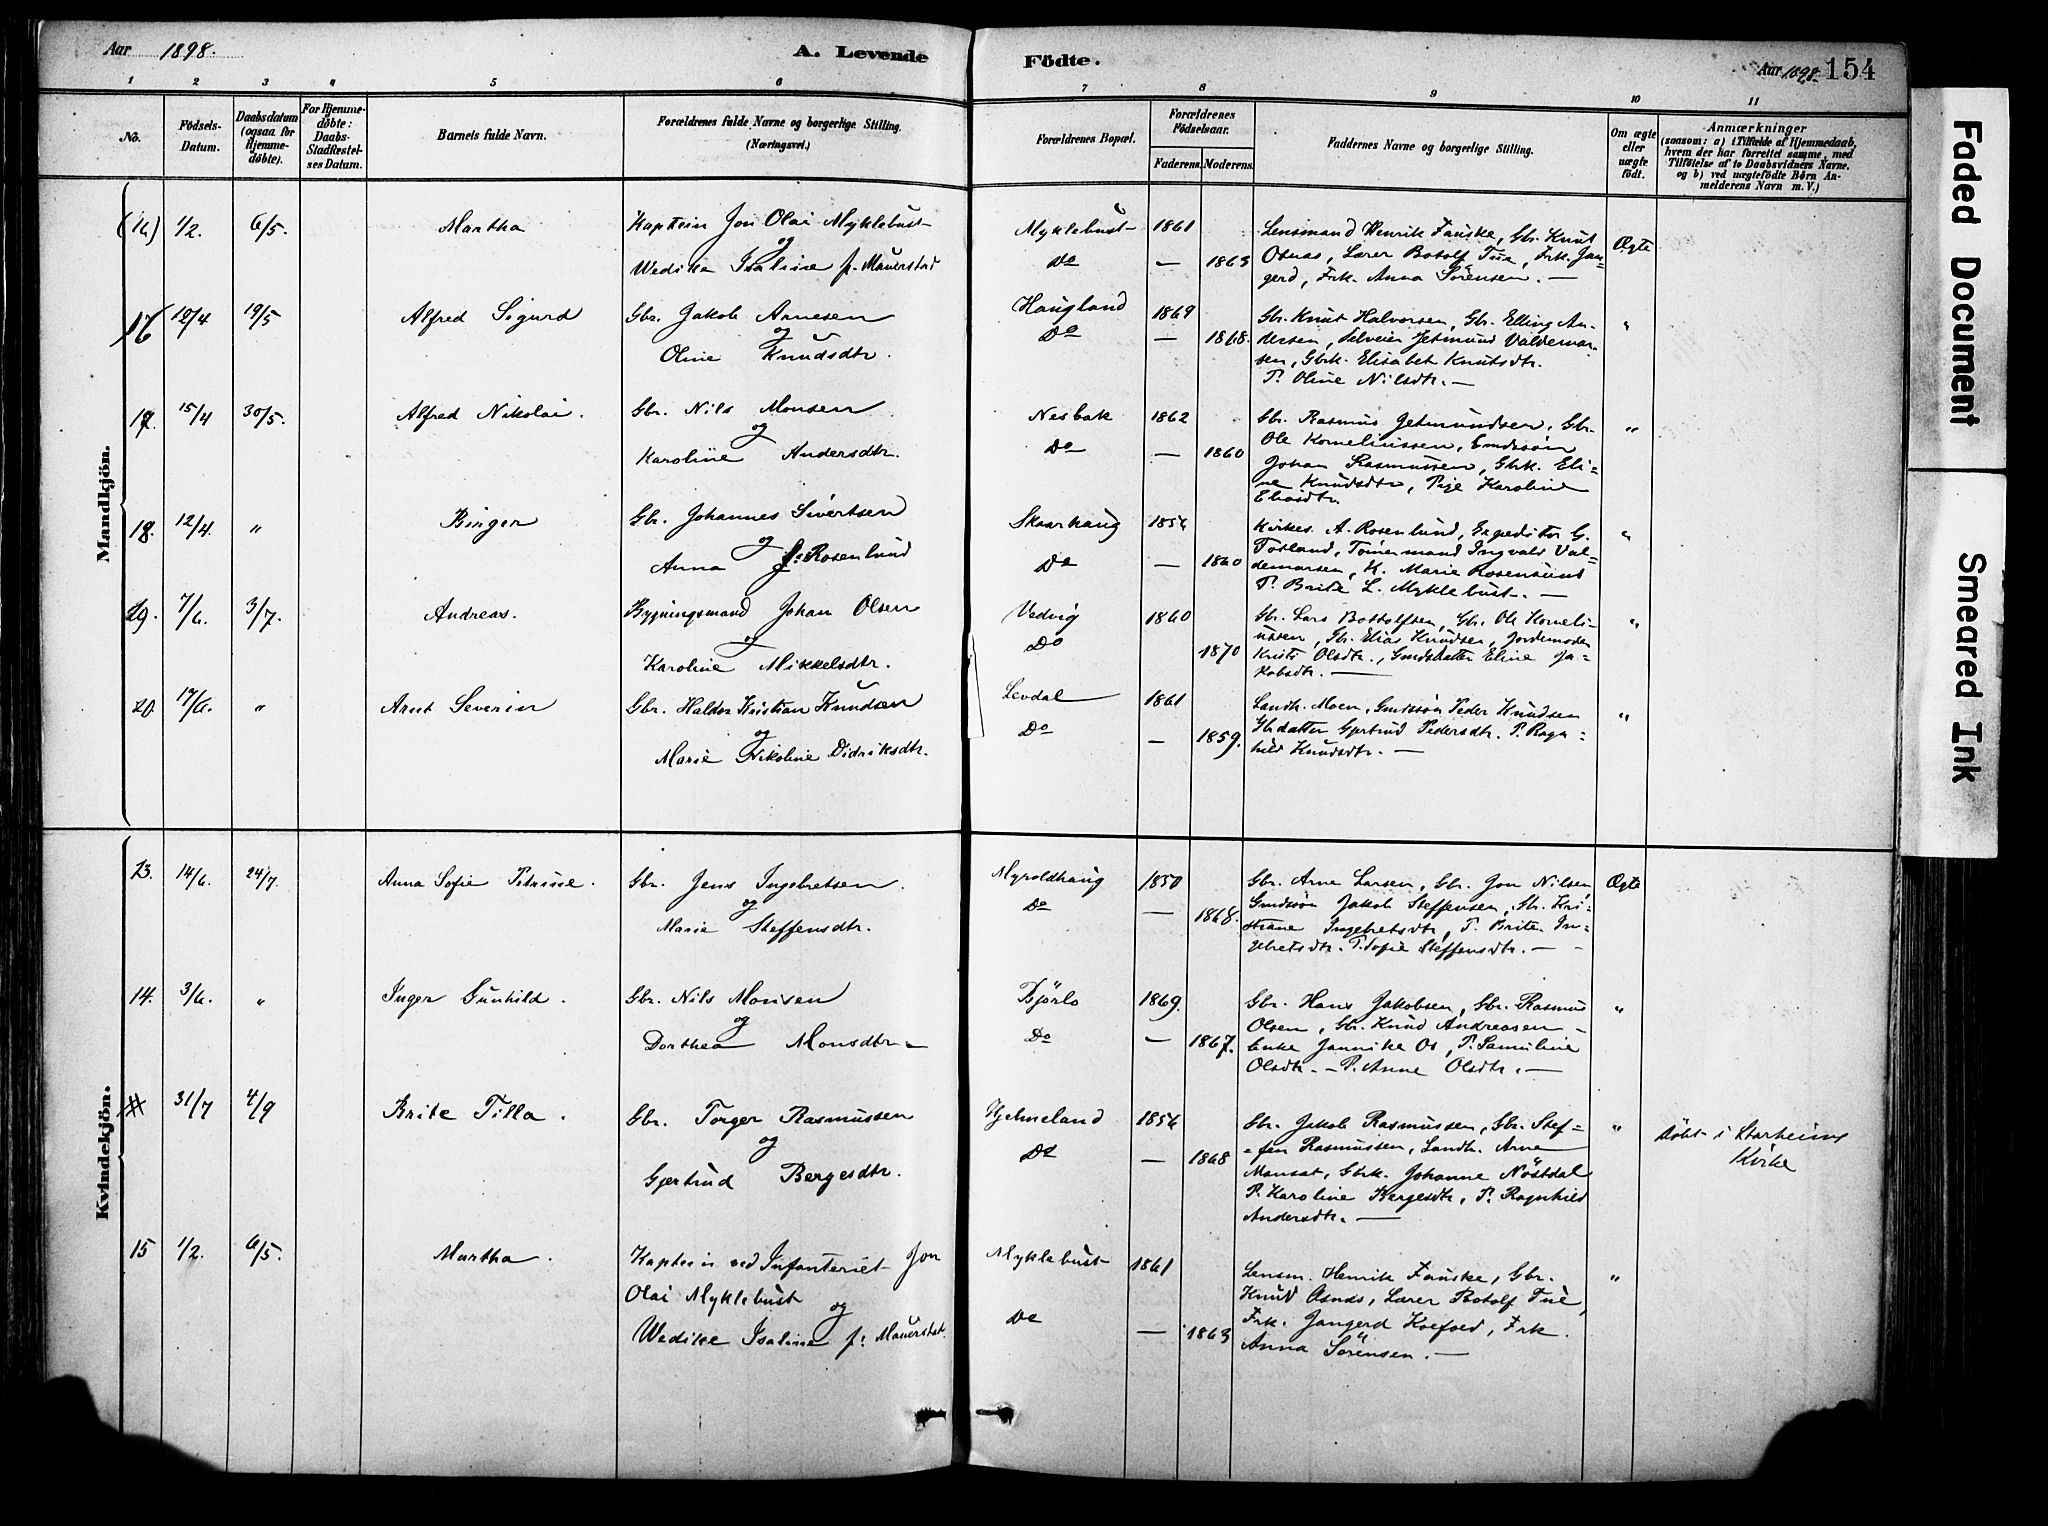 Aar 1898.
A. Levende Födte.
Aar 1898. 154
1 2 3 4 5 6 7 8 9 10 11
No.
Födsels-
Datum.
Daabsdatum
(ogsaa for
Hjemme-
döbte).
For Hjemme-
döbte:
Daabs-
Stadfæstel-
ses Datum.
Barnets fulde Navn.
Forældrenes fulde Navne og borgerlige Stilling.
(Næringsvei.)
Forældrenes Bopæl.
Forældrenes
Födselsaar.
Faderens. Moderens.
Faddernes Navne og borgerlige Stilling.
Om ægte
eller
uægte
födt.
Anmærkninger
(saasom: a) i Tilfælde af Hjemmedaab,
hvem der har forrettet samme, med
Tilföielse af to Daabsvidners Navne.
og b) ved uægtefödte Börn An-
melderens Navn m. V.)
Mandkjön.
(16) 1/2. 6/5. Martha Kaptein Jon Olai Myklebust
og
Wedike Isaline f. Mauerstad
Myklebust 1861
Do — 1863
Lensmand Henrik Fauske, Gbr. Knut
Osnas, Lærer Botolf Tue, Frk. Jan-
gerd, Frk. Anna Sörensen. —
Ægte
16 12/4 19/5 Alfred Sigurd Gbr. Jakob Arnesen
og
Oline Knudsdtr.
Haugland 1869
Do — 1868.
Gbr. Knut Halvorsen, Gbr. Elling An-
dersen, Selveier Jetmund Valdemar-
sen, Gbrk. Elisabet Knutsdtr.
P. Oline Nilsdtr. —
"
17. 15/4 30/5. Alfred Nikolai. Gbr. Nils Monsen
og
Karoline Andersdtr.
Nesbak 1862
Do — 1860
Gbr. Rasmus Jetmundsen, Gbr.
Ole Korneliussen, Gmdssön
Johan Rasmussen, Gbrk. Eli-
ne Knudsdtr, Pige Karoline
Eliasdtr.
"
18. 12/4. " Birger Gbr. Johannes Sivertsen
og
Anna f. Rosenlund
Skaarhaug 1854
Do — 1860
Kirkes. A. Rosenlund, Expeditör G.
Tosland, Tömermand Ingvald Val-
demarsen, K. Marie Rosenlund
P. Brite L. Myklebust. —
"
19. 7/6. 3/7. Andreas. Bygningsmand Johan Olsen
og
Karoline Mikkelsdtr.
Vedvig 1860
Do 1870
Gbr. Lars Bottolfsen, Gbr. Ole Korneli-
ussen, Gbr. Elias Knudsen, Jordemoder
Kristi Olsdtr., Gmdsdatter Eline Ja-
kobsdtr. —
"
20 17/6. " Arnt Severin Gbr. Haldor Kristian Knudsen
og
Marie Nikoline Didriksdtr.
Levdal 1861
Do — 1859.
Landh. Moen, Gmdssön Peder Knudsen
Gbdatter Gjertrud Pedersdtr. P. Ragn-
hild Knudsdtr. —
"
Kvindekjön.
23. 14/6. 24/7. Anna Sofie Petrine. Gbr. Jens Ingebretsen.
og
Marie Steffensdtr.
Myroldhaug 1850
Do — 1868.
Gbr. Arne Larsen, Gbr. Jon Nilsen,
Gmdssön Jakob Steffensen, Gbr. Kri-
stiane Ingebretsdtr, P. Brite In-
gebretsdtr. P. Sofie Steffensdtr. —
Ægte
14. 3/6. " Inger Gunhild. Gbr. Nils Monsen
og
Dorthea Monsdtr —
Bjørlo 1869.
Do — 1867.
Gbr. Hans Jakobsen, Gbr. Rasmus
Olsen, Gbr. Knud Andreasen —
Enke Jannike Os, P. Samuline
Olsdtr. — P. Anne Olsdtr. —
"
31/7 4/9 Brite Tilla. Gbr. Torger Rasmussen
og
Gjertrud Bergesdtr.
Hjelmeland 1854
Do — 1868
Gbr. Jakob Rasmussen, Gbr. Stef-
fen Rasmussen, Landh. Arne
Mansat, Gbrk. Johanne Nöstdal
P. Karoline Bergesdtr, P. Ragnhild
Andersdtr. —
"
Döbt i Starheims
Kirke
15 1/2. 6/5. Martha. Kaptein ved Infanteriet Jon
Olai Myklebust
og
Wedike Isaline f. Mauerstad.
Myklebust 1861
Do — 1863
Lensm. Henrik Fauske, Gbr.
Knud Osnas, Lærer Botolf Tue,
Frk. Jangerd Koefoed, Frk.
Anna Sörensen. —
"
Faded Document
Smeared Ink